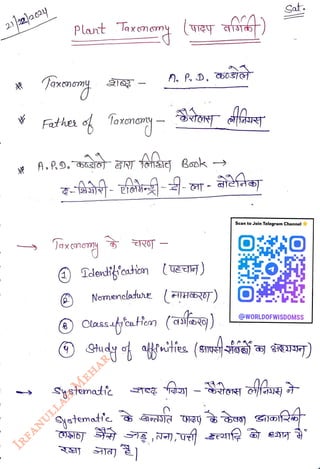 21/12/2024
Sat.
Plant Taxonomy (पादप वर्गिकी)
* Taxonomy शब्द - A. P. D. कण्डोले
* Father of Taxonomy - कैरोलस लीनियस
* A.P.D. कण्डोले द्वारा लिखित Book →
द - थियोरी - एलिमेन्ट्री - डी - ला - बोटेनिका
→ Taxonomy के चरण -
① Identification (पहचान)
② Nomenclature (नामकरण)
③ Classification (वर्गीकरण)
④ Study of affinities (आपसी संबंधों का अध्ययन)
Scan to Join Telegram Channel
@WORLDOFWISDOMSS
→ Systematic शब्द दिया - कैरोलस लीनियस ने
Systematic के अन्तर्गत पादप के केवल आकारिकी
लक्षण जैसे जड़, तना, पत्ती इत्यादि को ध्यान में
रखा जाता है।
IRFANULLAH MEHAR